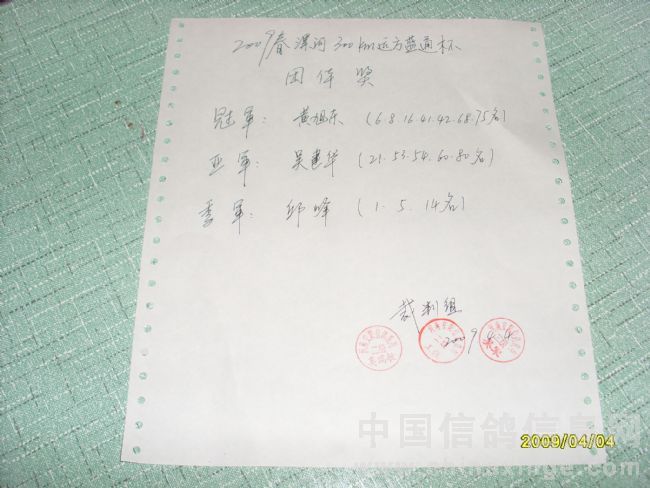 2009春漯河300km远方蓝通杯
团体奖
冠军：黄旭东（6.8.16.41.42.68.75名）
亚军：吴建华（21.53.54.60.80名）
季军：邱峰（1.5.14名）
裁判组
2009.4.4
中国信鸽信息网
www.chinaxinge.com
2009/04/04